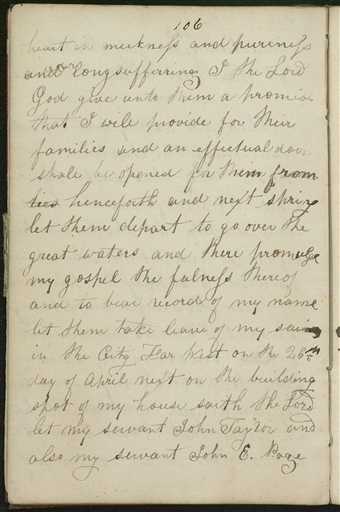 106
heart in meekness and pureness
and long suffering I the Lord
God give unto them a promise
that I will provide for their
families and an effectual door
shall be opened for them from
henceforth and next spring
let them depart to go over the
great waters and there promulge
my gospel the fulness thereof
and to bear record of my name
let them take leave of my saints
in the City Far West on the 26th
day of April next on the building
spot of my house saith the Lord
let my servant John Taylor and
also my servant John E. Page